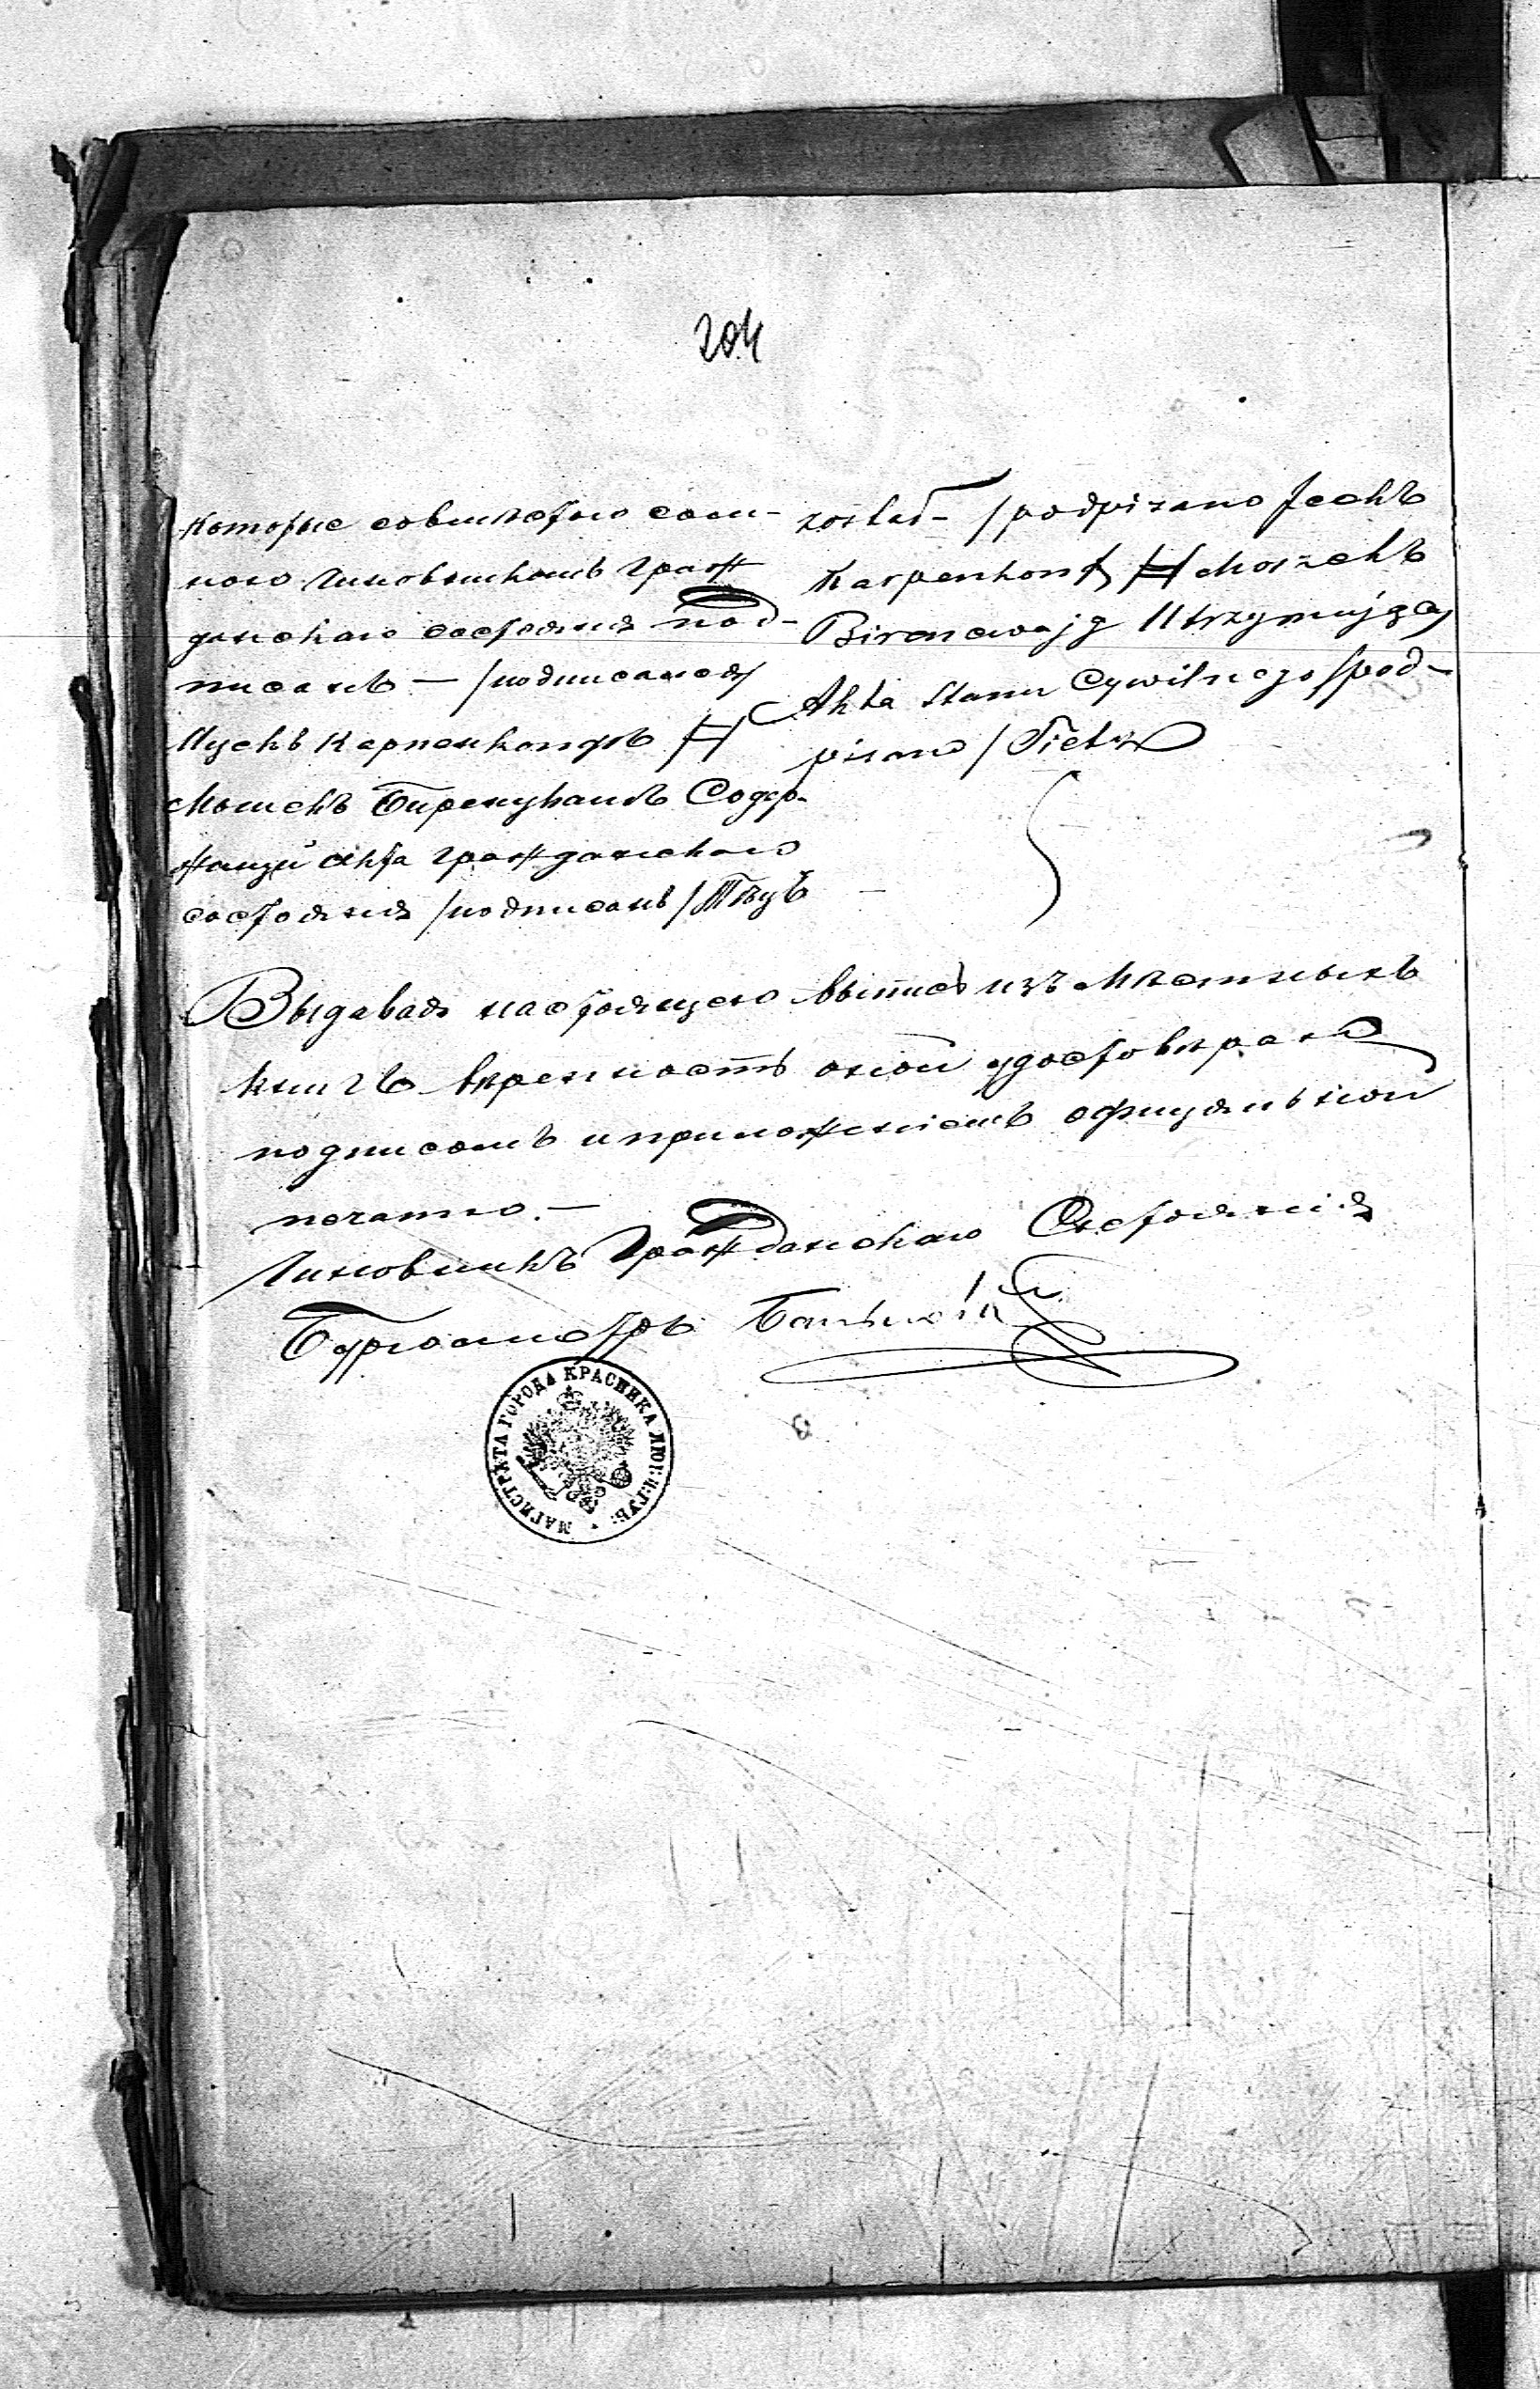 204
которые совместно сам-
нымъ Чиновникомъ Граж
данскаго состоянія под-
писанъ — /подписался/
Ицекъ Карпенкопфъ #
Мошекъ Биренцвайгъ Содер-
жащій Акта гражданскаго
состоянія /подписанъ/ Тецъ
został — /podpisano Icekъ
Karpenkonf # Moszekъ
Birencwajg Utrzymujący
Akta Stanu Cywilnego /pod-
pisano/ Tietz
Выдавая настоящую выпись изъ мѣстныхъ
книгъ вѣрность оной удостовѣряю
подписомъ и приложеніемъ официяльной
печатью. —
Чиновникъ Гражданскаго Состоянія
Бургомистръ
МАГИСТРАТА ГОРОДА КРАСНИКА ЛЮБ: ГУБ: